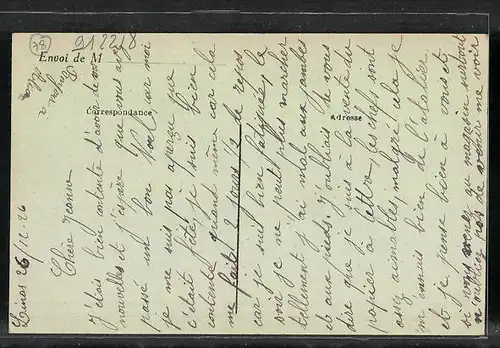 Envoi de M
Correspondance
Adresse
26/12.26
Chère Jeanne
J'étais bien contente d'avoir de vos
nouvelles et j'espère que vous avez
passé un bon Noël, car moi
je me suis pas aperçu que
c'était fête, je suis bien
contente quand même car cela
me fait 2 jours ½ de repos
car je suis bien fatiguée, le
soir je ne peut plus marcher
tellement j'ai mal aux jambes
et aux pieds. J'oubliais de vous
dire que je suis à la vente du
papier à lettre, les chefs sont
assez aimables, malgré cela je
m'ennuis bien de l'atelier
et je pense bien à vous et
si vous venez au magasin surtout
n'oubliez pas de venir me voir